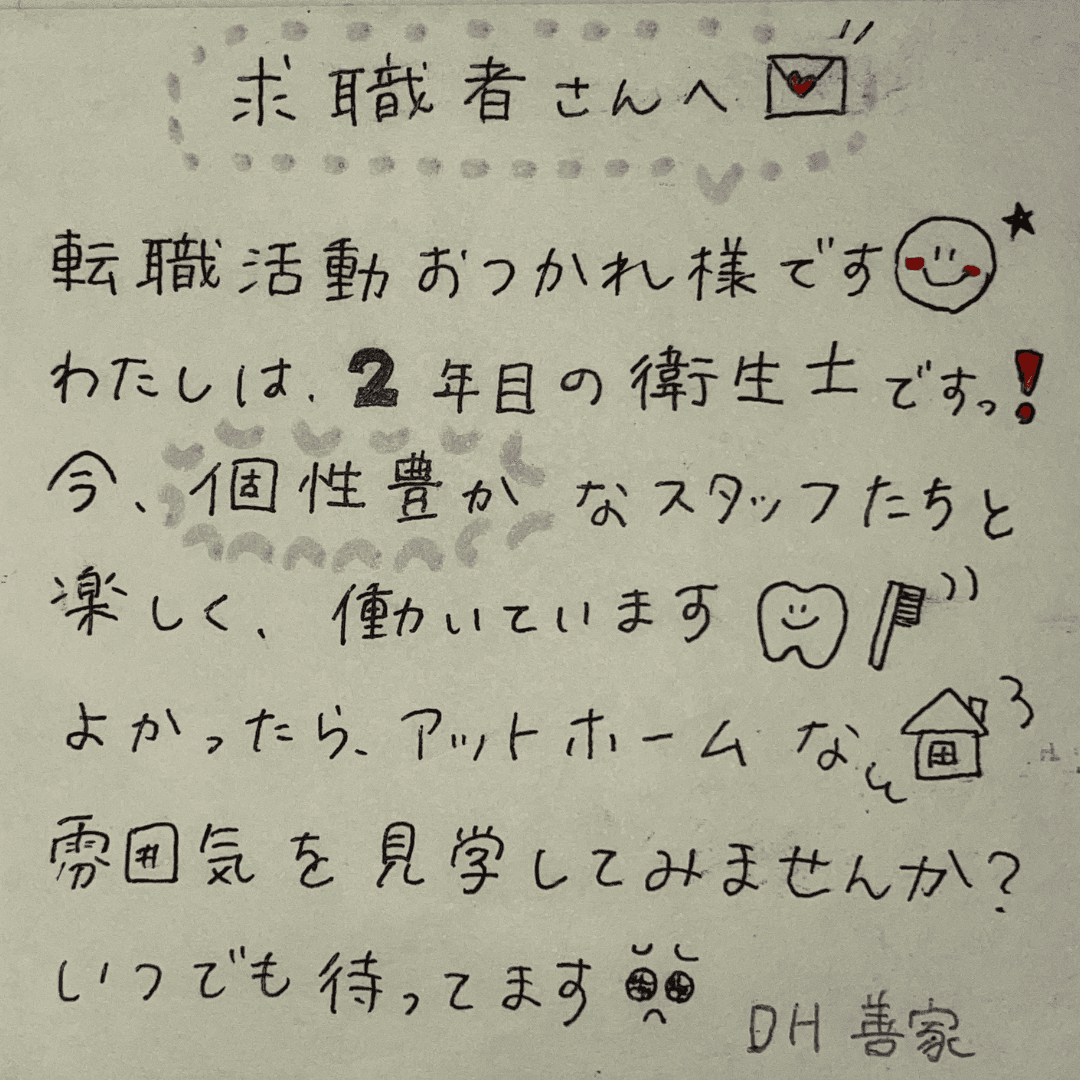 求職者さんへ
転職活動おつかれ様です
わたしは、2年目の衛生士ですっ!
今、個性豊かなスタッフたちと
楽しく、働いています
よかったら、アットホームな
雰囲気を見学してみませんか?
いつでも待ってます
DH 善家